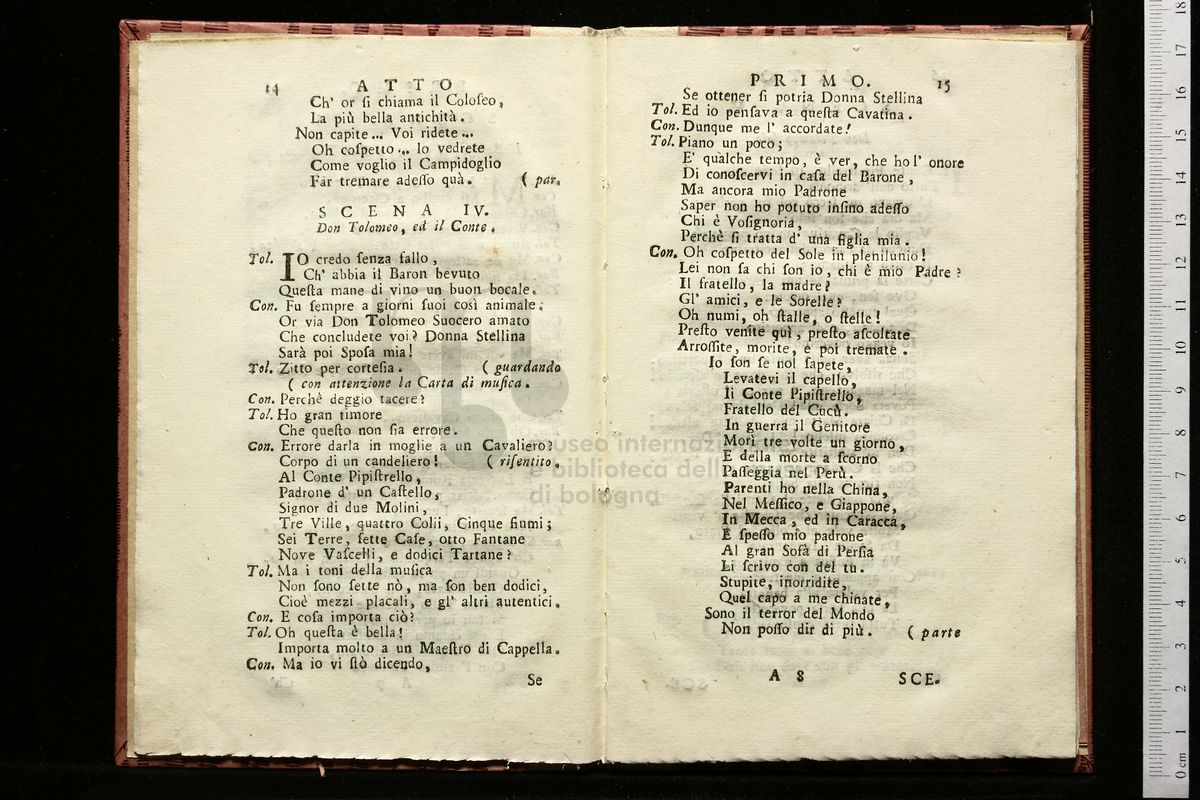 14 ATTO
Ch' or ſi chiama il Coloſeo,
La più bella antichità.
Non capite... Voi ridete...
Oh coſpetto... lo vedrete
Come voglio il Campidoglio
Far tremare adeſſo quà. ( par.
SCENA IV.
Don Tolomeo, ed il Conte.
Tol. IO credo ſenza fallo,
Ch' abbia il Baron bevuto
Queſta mane di vino un buon bocale.
Con. Fu ſempre a giorni ſuoi così animale;
Or via Don Tolomeo Suocero amato
Che concludete voi? Donna Stellina
Sarà poi Spoſa mia!
Tol. Zitto per corteſia. ( guardando
( con attenzione la Carta di muſica.
Con. Perchè deggio tacere?
Tol. Ho gran timore
Che queſto non ſia errore.
Con. Errore darla in moglie a un Cavaliero?
Corpo di un candeliero! ( riſentito.
Al Conte Pipiſtrello,
Padrone d' un Caſtello,
Signor di due Molini,
Tre Ville, quattro Colii, Cinque fiumi;
Sei Terre, ſette Caſe, otto Fantane
Nove Vaſcelli, e dodici Tartane?
Tol. Ma i toni della muſica
Non ſono ſette nò, ma ſon ben dodici,
Cioè mezzi placali, e gl' altri autentici.
Con. E coſa importa ciò?
Tol. Oh queſta è bella!
Importa molto a un Maeſtro di Cappella.
Con. Ma io vi ſtò dicendo,
Se
PRIMO. 15
Se ottener ſi potria Donna Stellina
Tol. Ed io penſava a queſta Cavatina.
Con. Dunque me l' accordate!
Tol. Piano un poco;
E' qualche tempo, è ver, che ho l' onore
Di conoſcervi in caſa del Barone,
Ma ancora mio Padrone
Saper non ho potuto inſino adeſſo
Chi è Voſignoria,
Perchè ſi tratta d' una figlia mia.
Con. Oh coſpetto del Sole in plenilunio!
Lei non ſa chi ſon io, chi è mio Padre?
Il fratello, la madre?
Gl' amici, e le Sorelle?
Oh numi, oh ſtalle, o ſtelle!
Preſto venite quì, preſto aſcoltate
Arroſſite, morite, e poi tremate.
Io ſon ſe nol ſapete,
Levatevi il capello,
Il Conte Pipiſtrello,
Fratello del Cucù.
In guerra il Genitore
Morì tre volte un giorno,
E della morte a ſcorno
Paſſeggia nel Perù.
Parenti ho nella China,
Nel Meſſico, e Giappone,
In Mecca, ed in Caracca,
E ſpeſſo mio padrone
Al gran Sofà di Perſia
Li ſcrivo con del tu.
Stupite, inorridite,
Quel capo a me chinate,
Sono il terror del Mondo
Non poſſo dir di più. ( parte
A 8 SCE.
museo internazi
e biblioteca della
di bologna
0 cm 1 2 3 4 5 6 7 8 9 10 11 12 13 14 15 16 17 18